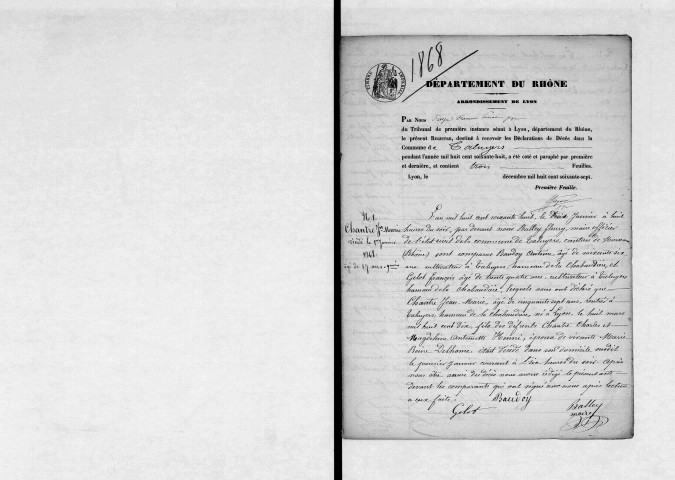 1868
DÉPARTEMENT DU RHÔNE
ARRONDISSEMENT DE LYON
PAR NOUS
du Tribunal de première instance séant à Lyon, département du Rhône,
le présent REGISTRE, destiné à recevoir les Déclarations de Décès dans la
Commune de Taluyers
pendant l'année mil huit cent soixante-huit, a été coté et paraphé par première
et dernière, et contient trois Feuilles.
Lyon, le décembre mil huit cent soixante-sept.
Première Feuille.
N. 1.
Chantre Jn Marie
décédé le 1er Janvier
1868.
âgé de 57 ans
L'an mil huit cent soixante huit, le Janvier à huit
heures du soir, par devant nous Balley fleury, maire officier
de l'état civil de la commune de Taluyers, canton de
(Rhône) sont comparus Baudoy âgé de
ans cultivateur à Taluyers, hameau de la Chabaudière, et
Gelot françois âgé de trente quatre ans, cultivateur à Taluyers
hameau de la Chabaudière, lesquels nous ont déclaré que
Chantre Jean Marie, âgé de cinquante sept ans, rentier à
Taluyers, hameau de la Chabaudière, né à Lyon le huit mars
mil huit cent dix, fils des défunts Chantre Charles et
Magdeleine Antoinette Henri, époux de vivante Marie
Reine Delhome, était décédé dans son domicile susdit
le premier janvier courant à dix heures du soir. Après
nous être assuré du décès nous avons rédigé le présent acte
devant les comparants qui ont signé avec nous après lecture
à eux faite.
Baudoy
Gelot
Balley
maire